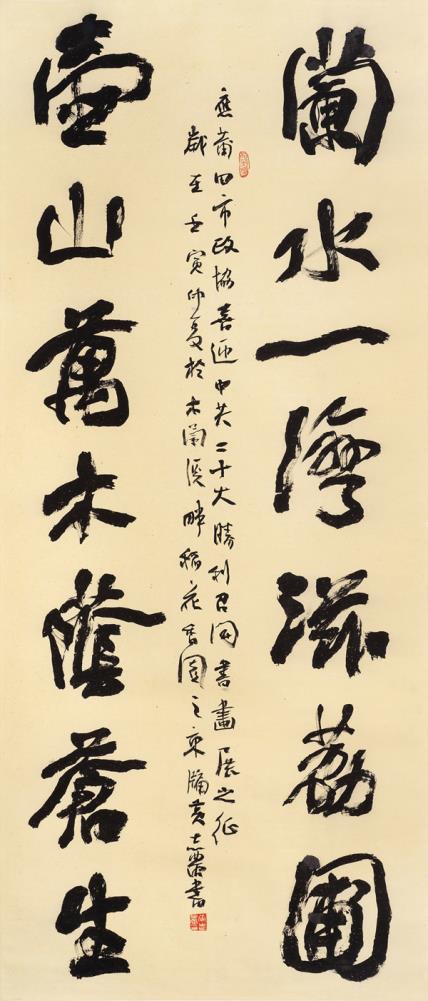 蘭水一灣滋荔圃
壺山萬木蔭蒼生
應莆田市政協喜迎中共二十大勝利召開書畫展之征
歲至壬寅仲夏於木蘭溪畔稻花香園之東牖黃書